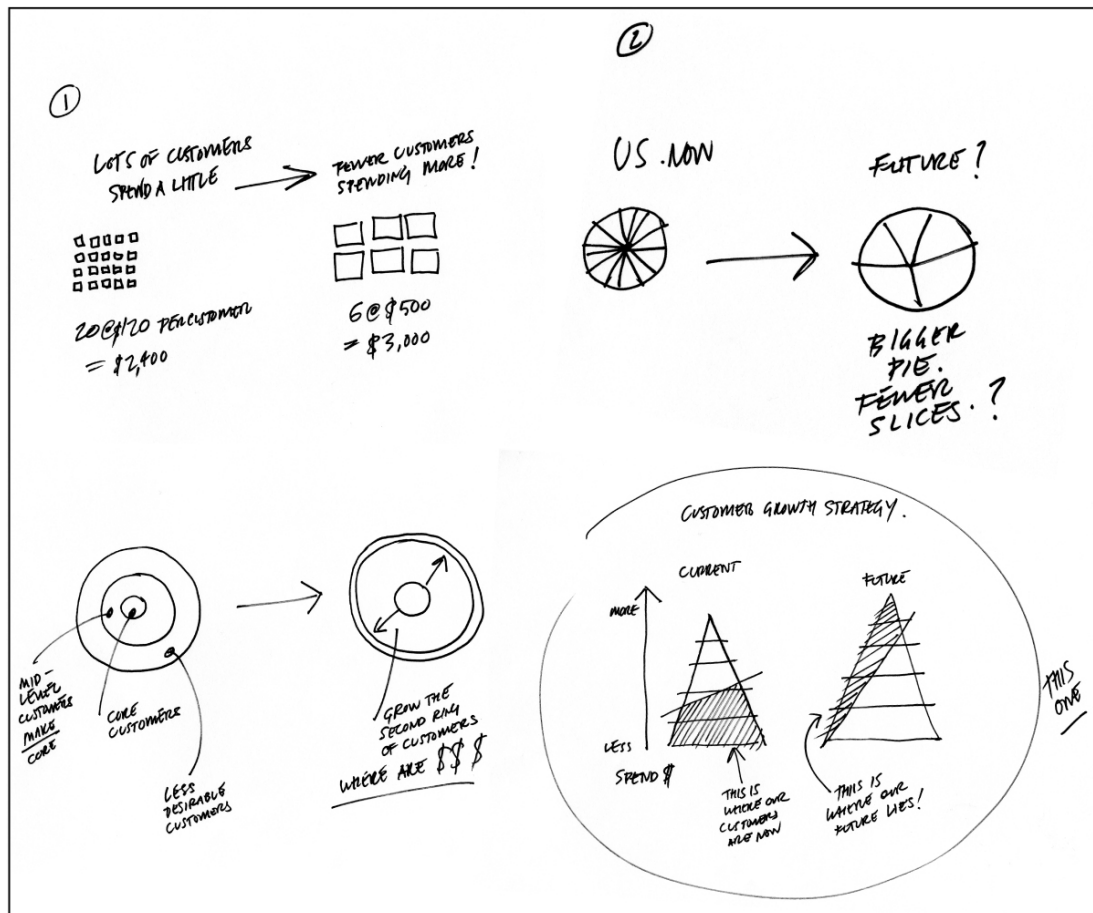 1
LOTS OF CUSTOMERS
SPEND A LITTLE
FEWER CUSTOMERS
SPENDING MORE!
20@$120 PER CUSTOMER
= $2,400
6@$500
= $3,000
2
US. NOW
FUTURE?
BIGGER
PIE.
FEWER
SLICES.?
MID-
LEVEL
CUSTOMERS
MAKE
CORE
CORE
CUSTOMERS
LESS
DESIRABLE
CUSTOMERS
GROW THE
SECOND RING
OF CUSTOMERS
WHERE ARE $$$
CUSTOMER GROWTH STRATEGY.
CURRENT
FUTURE
MORE
LESS
SPEND $
THIS IS
WHERE OUR
CUSTOMERS
ARE NOW
THIS IS
WHERE OUR
FUTURE LIES!
THIS
ONE